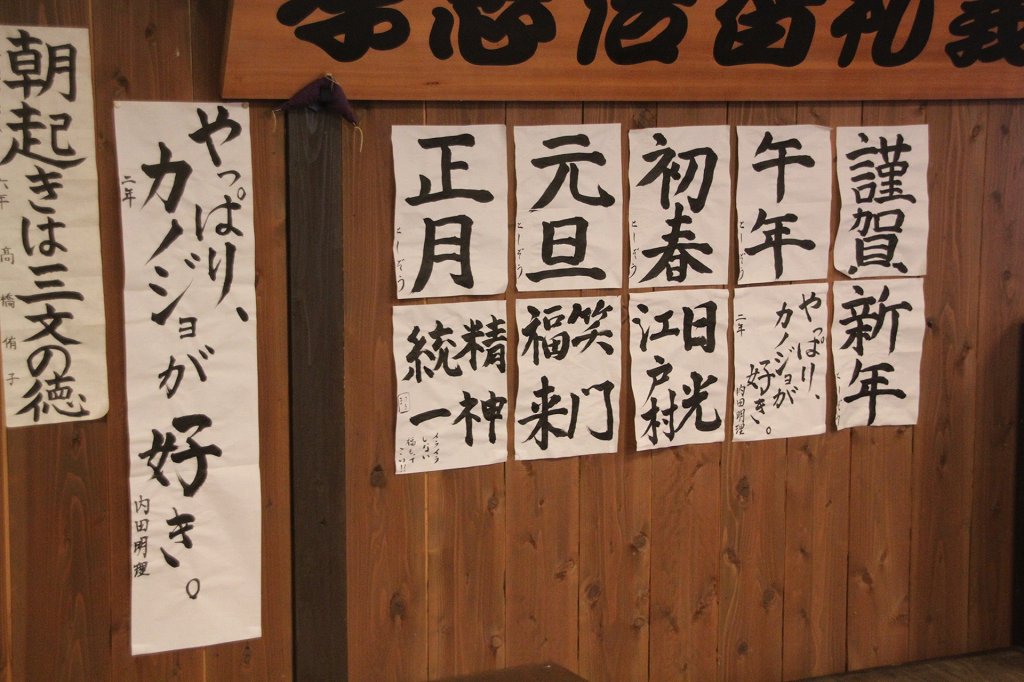 謹賀
午年
としぞう
初春
としぞう
元旦
としぞう
正月
としぞう
新年
やっぱり、
カノジョが
好き。
二年 内田明理
日光
江戸村
笑門
福来
精神
統一
イライラ
しない
やっぱり、
カノジョが
好き。
二年 内田明理
朝起きは三文の徳
六年 高橋侑子